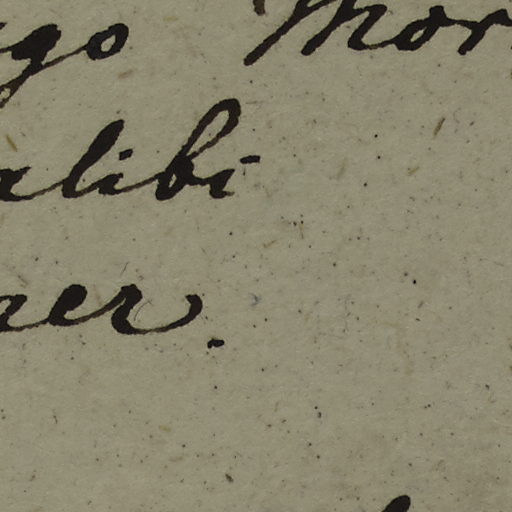 go Mor
alibi
ner.